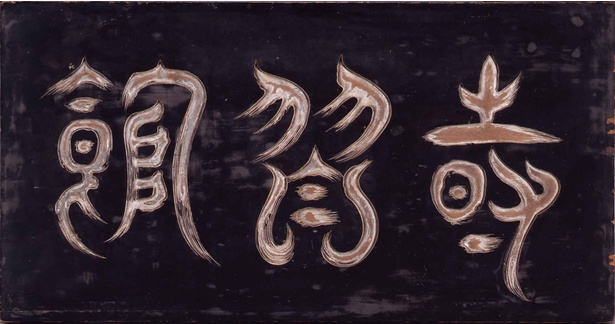 時習館